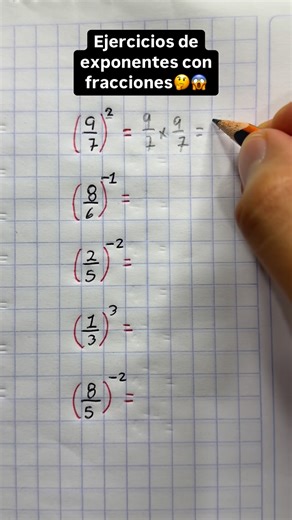 Ejercicios de
exponentes con
fracciones🤔😱
(9/7)² = 9/7 × 9/7 =
(8/6)⁻¹ =
(2/5)⁻² =
(1/3)³ =
(8/5)⁻² =